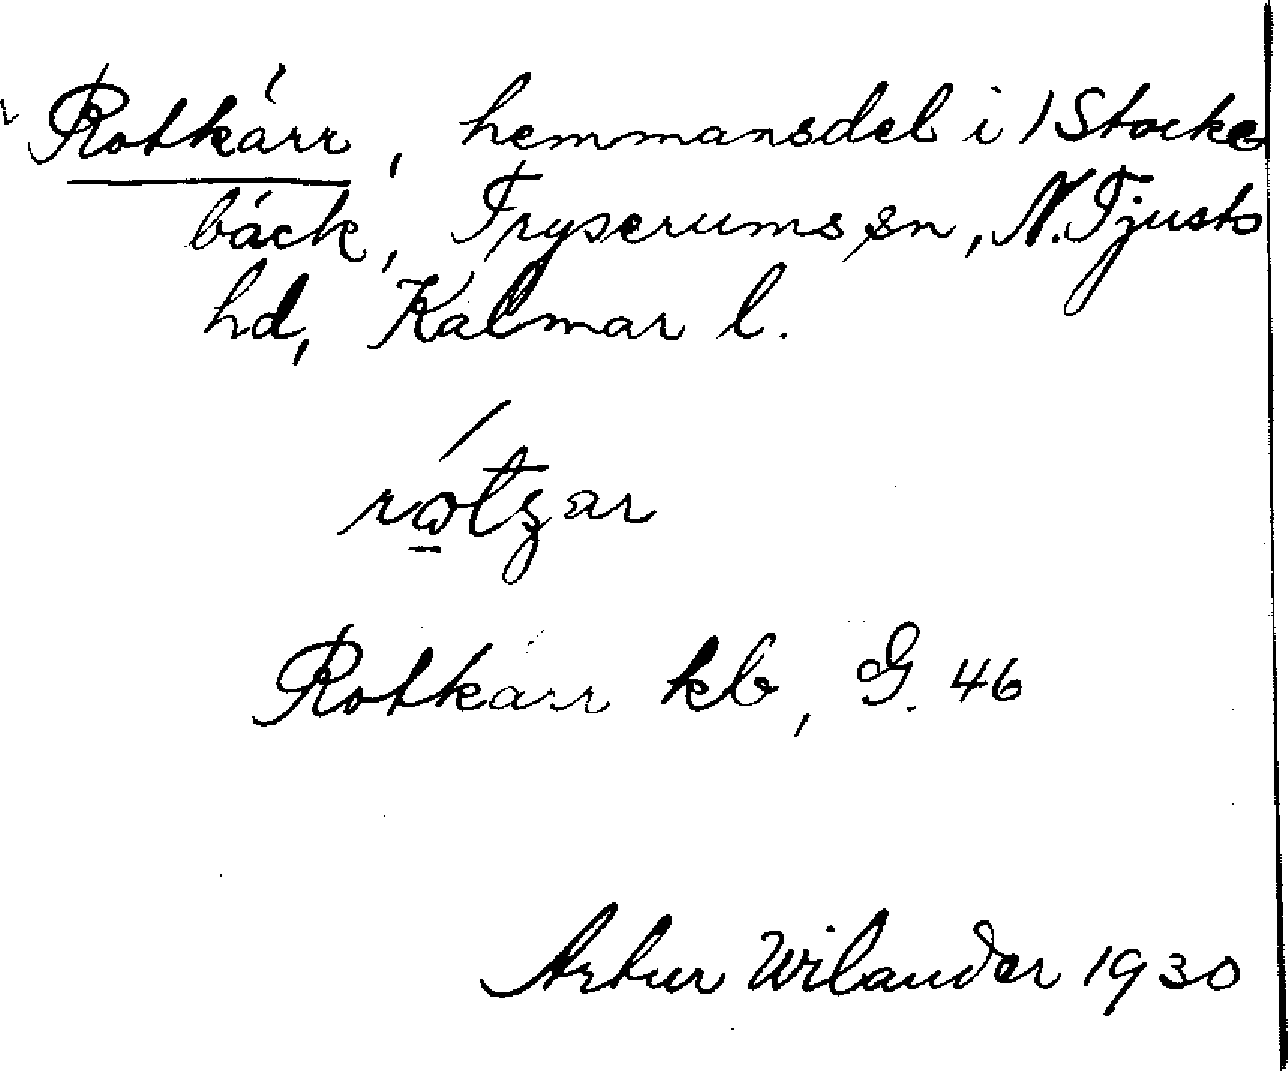 Rotkärr, hemmansdel i 1 Stocke
bäck, Tryserums sn, N. Tjusts
hd, Kalmar l.
Rotkärr kb, G. 46
Artur Wilander 1930